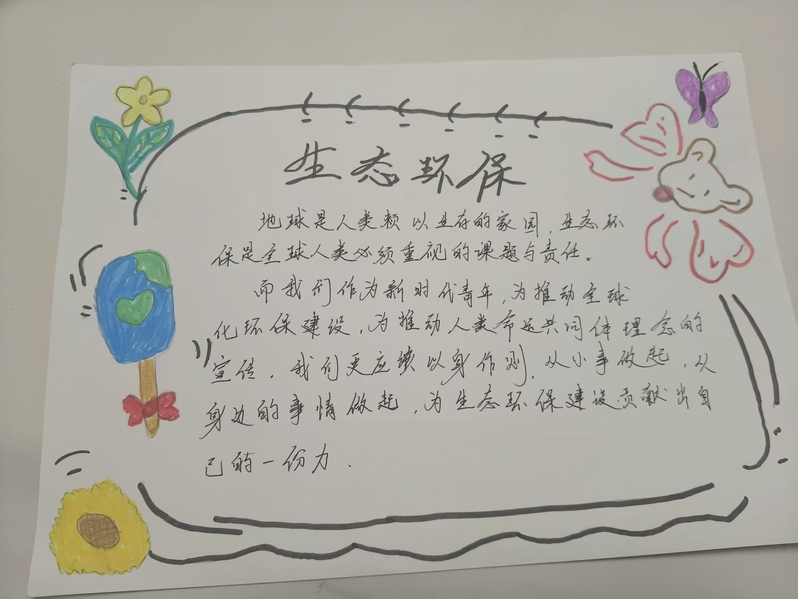 生态环保
地球是人类赖以生存的家园，生态环
保是全球人类必须重视的课题与责任。
而我们作为新时代青年，为推动全球
化环保建设，为推动人类命运共同体理念的
宣传，我们更应该以身作则，从小事做起，从
身边的事情做起，为生态环保建设贡献出自
己的一份力．